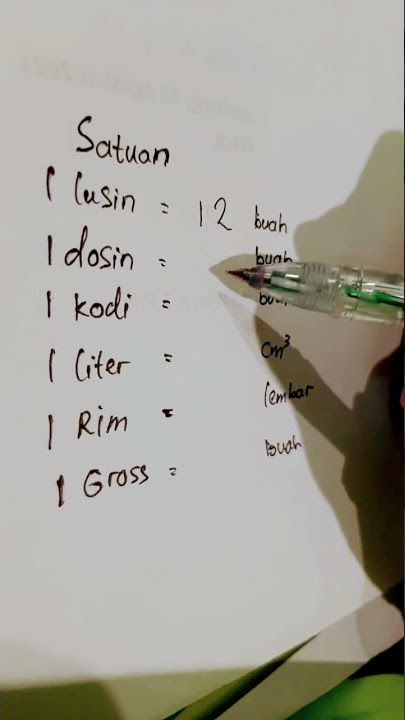 Satuan
1 lusin = 12 buah
1 dosin = buah
1 kodi =
1 liter = cm³
1 Rim = lembar
1 Gross = buah